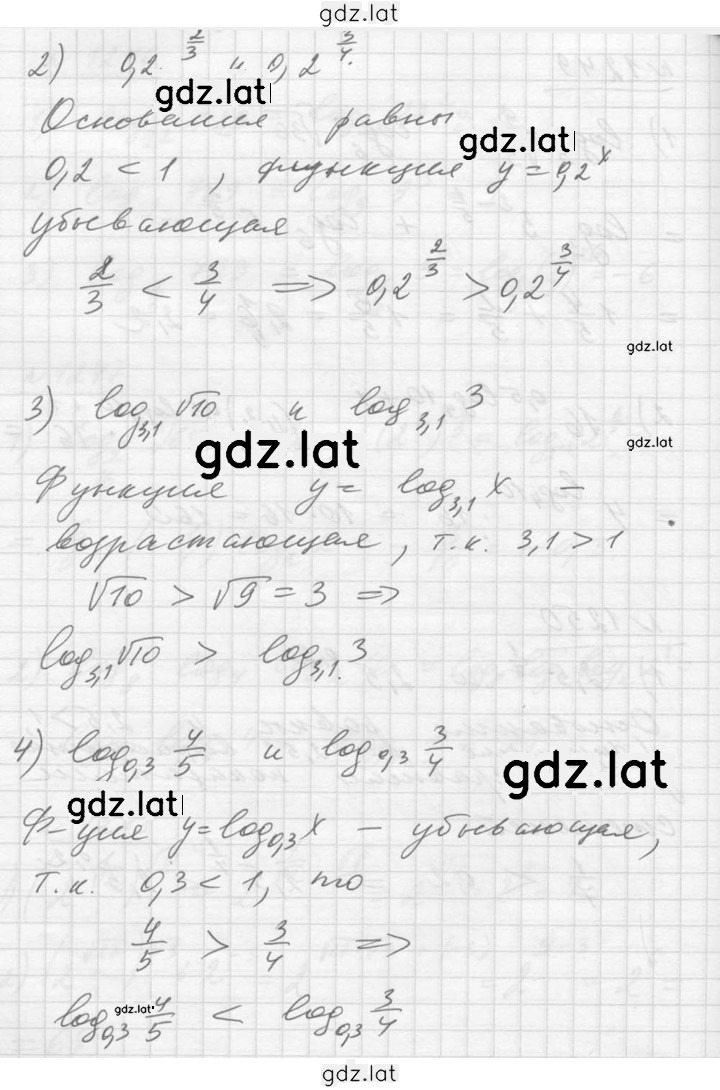 gdz.lat
2) 0,2^(2/3) и 0,2^(3/4).
gdz.lat
Основания равны
gdz.lat
0,2 < 1 , функция y = 0,2^x
убывающая
2/3 < 3/4 => 0,2^(2/3) > 0,2^(3/4)
gdz.lat
3) log_3,1 √10 и log_3,1 3
gdz.lat
gdz.lat
Функция y = log_3,1 x –
возрастающая, т.к. 3,1 > 1
√10 > √9 = 3 =>
log_3,1 √10 > log_3,1 3
4) log_0,3 4/5 и log_0,3 3/4
gdz.lat
gdz.lat
Ф-ция y = log_0,3 x – убывающая,
т.к. 0,3 < 1, то
4/5 > 3/4 =>
gdz.lat
log_0,3 4/5 < log_0,3 3/4
gdz.lat